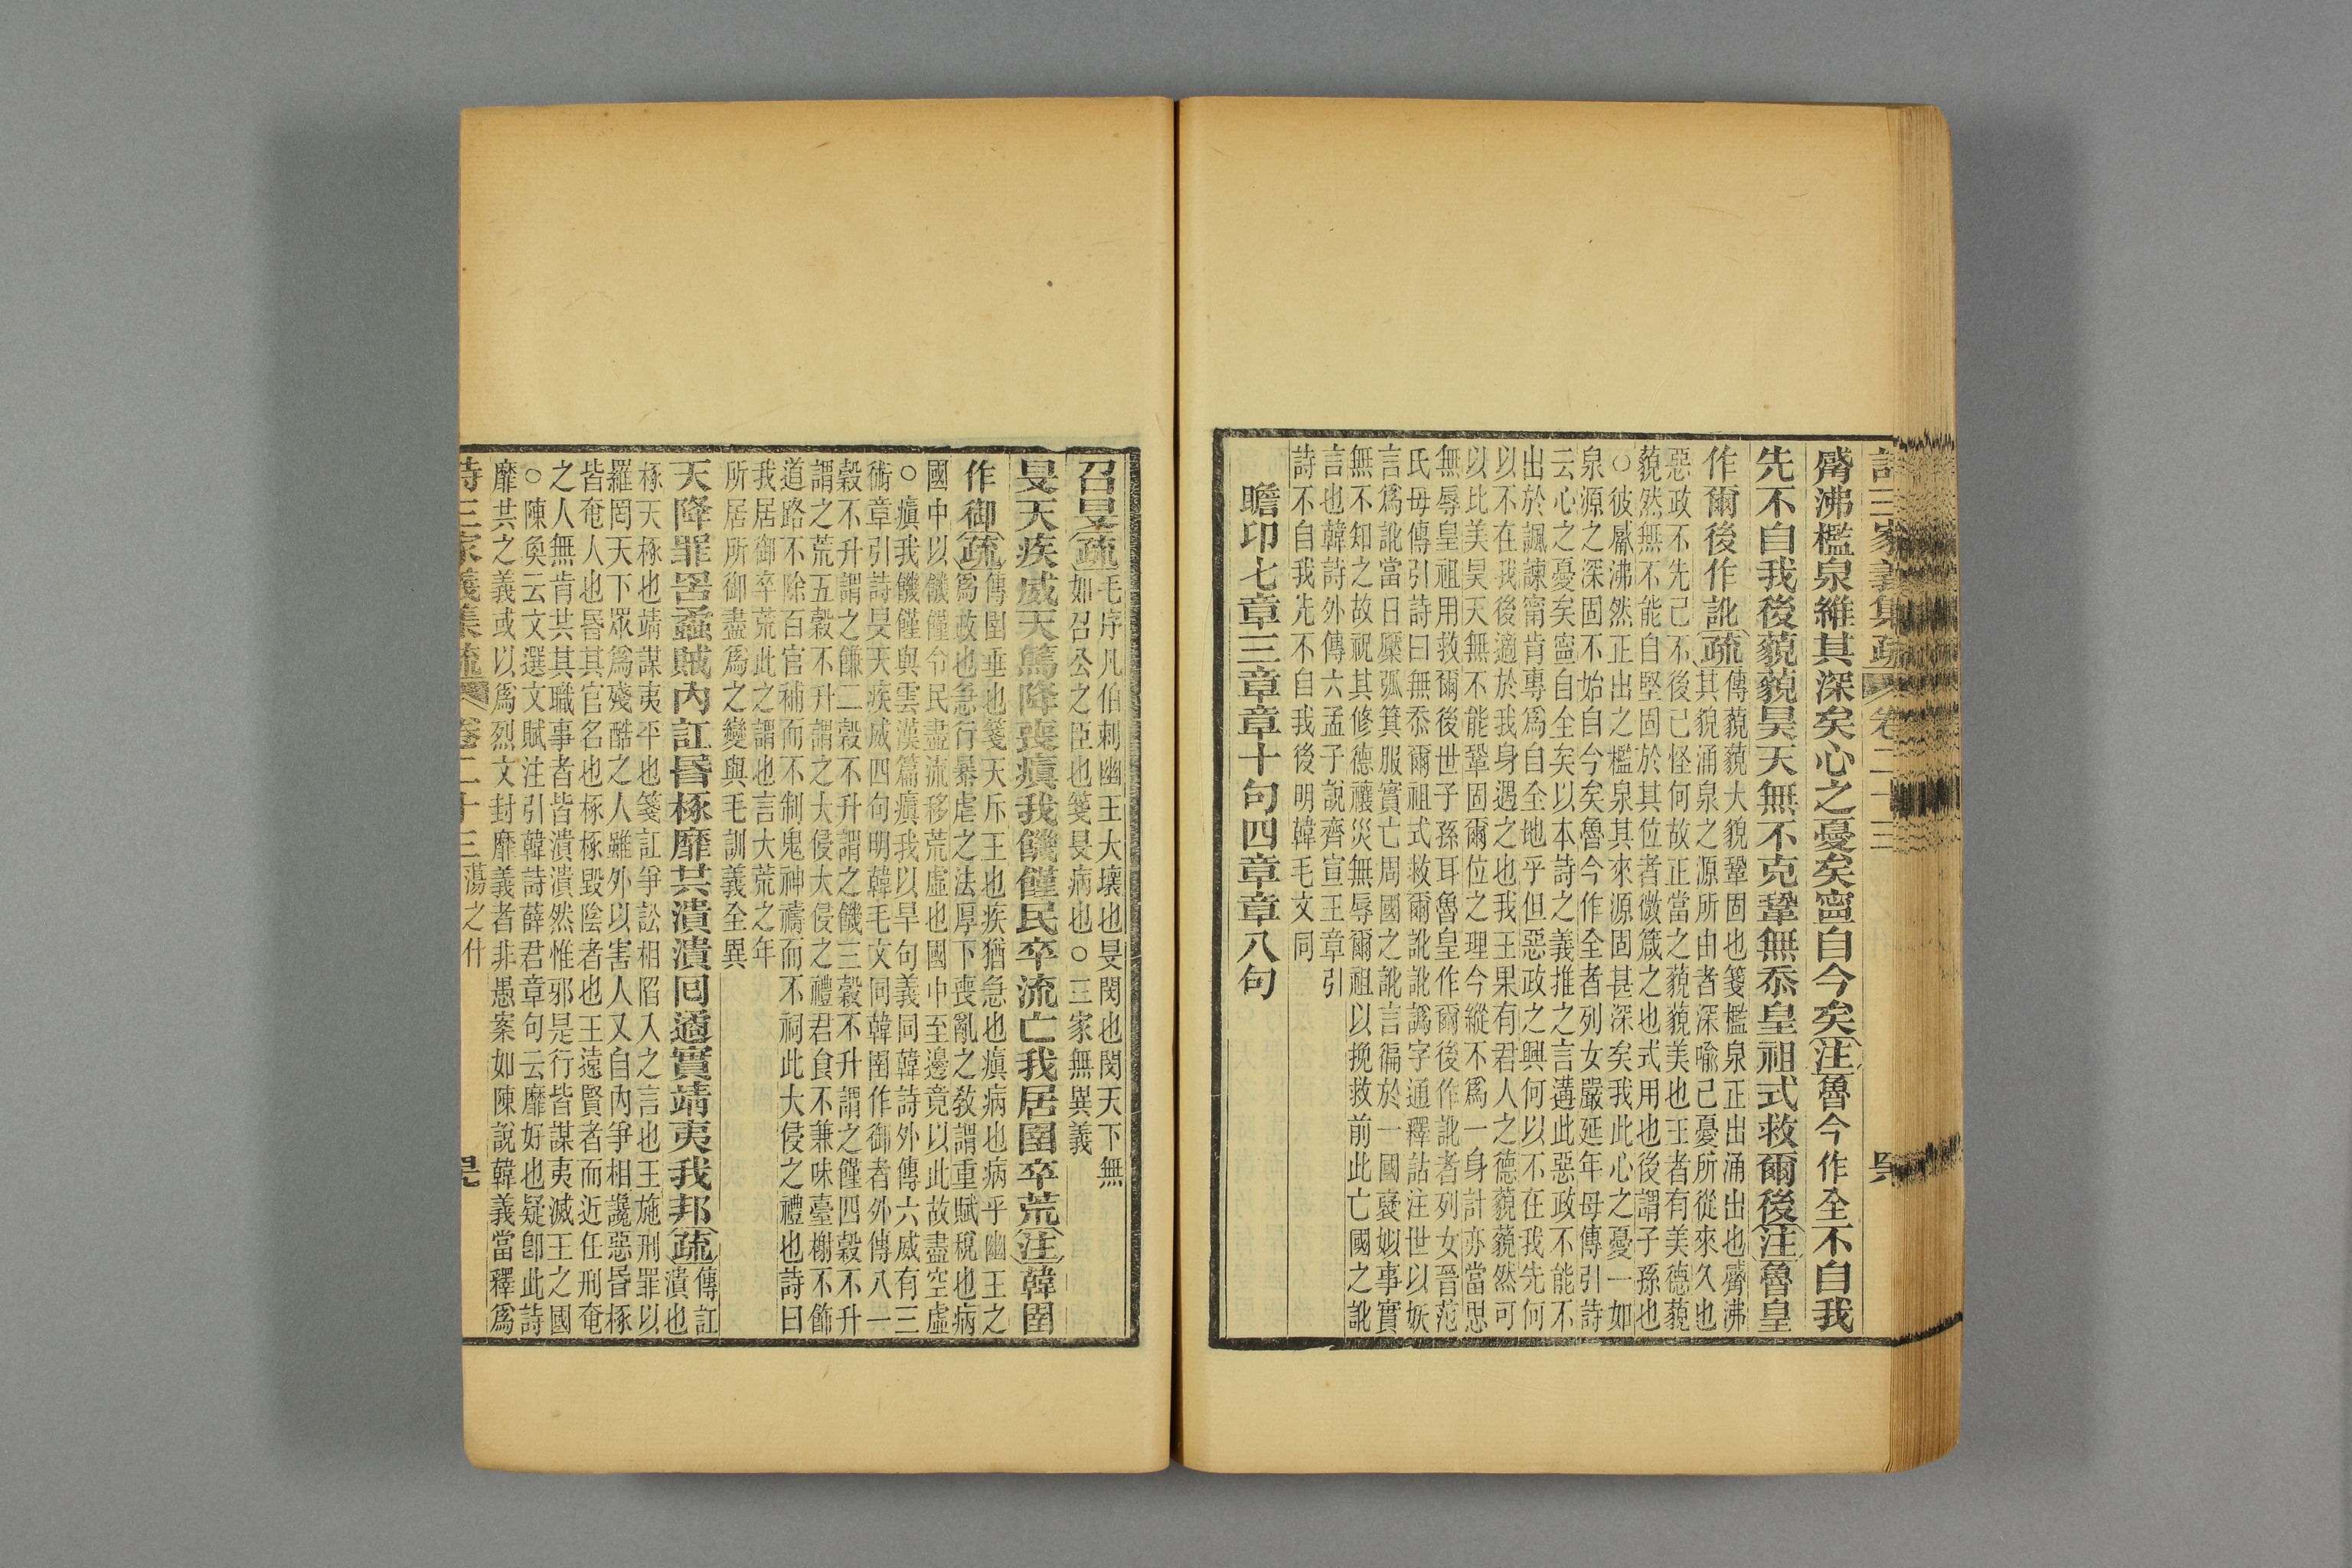 詩三家義集疏 卷二十三
觱沸檻泉維其深矣心之憂矣寧自今矣注魯今作全不自我
先不自我後藐藐昊天無不克鞏無忝皇祖式救爾後注魯皇
作爾後作訛疏
傳藐藐大貌鞏固也箋檻泉正出涌出也觱沸
其貌涌泉之源所由者深喻己憂所從來久也
惡政不先己不後己怪何故正當之藐藐美也王者有美德藐
藐然無不能自堅固於其位者微箴之也式用也後謂子孫也
○彼觱沸然正出之檻泉其來源固甚深矣我此心之憂一如
泉源之深固不始自今矣魯今作全者列女嚴延年母傳引詩
云心之憂矣寧自全矣以本詩之義推之言遘此惡政不能不
出於諷諫甯肯專為自全地乎但惡政之興何以不在我先何
以不在我後適於我身遇之也我王果有君人之德藐藐然可
以比美昊天無不能鞏固爾位之理今縱不為一身計亦當思
無辱皇祖用救爾後世子孫耳魯皇作爾後作訛者列女晉范
氏母傳引詩曰無忝爾祖式救爾訛訛譌字通釋詁注世以妖
言為訛當日檿弧箕服實亡周國之訛言徧於一國襃姒事實
無不知之故祝其修德禳災無辱爾祖以挽救前此亡國之訛
言也韓詩外傳六孟子說齊宣王章引
詩不自我先不自我後明韓毛文同
瞻卬七章三章章十句四章章八句
召旻疏
毛序凡伯刺幽王大壞也旻閔也閔天下無
如召公之臣也箋旻病也○三家無異義
旻天疾威天篤降喪瘨我饑饉民卒流亡我居圉卒荒注韓圉
作御疏
傳圉垂也箋天斥王也疾猶急也瘨病也病乎幽王之
為政也急行暴虐之法厚下喪亂之教謂重賦稅也病
國中以饑饉令民盡流移荒虛也國中至邊竟以此故盡空虛
○瘨我饑饉與雲漢篇瘨我以旱句義同韓詩外傳六威有三
術章引詩旻天疾威四句明韓毛文同韓圉作御者外傳八一
穀不升謂之歉二穀不升謂之饑三穀不升謂之饉四穀不升
謂之荒五穀不升謂之大侵大侵之禮君食不兼味臺榭不飾
道路不除百官補而不制鬼神禱而不祠此大侵之禮也詩曰
我居御卒荒此之謂也言大荒之年
所居所御盡為之變與毛訓義全異
天降罪罟蟊賊內訌昬椓靡共潰潰回遹實靖夷我邦疏
傳訌
潰也
椓夭椓也靖謀夷平也箋訌爭訟相陷入之言也王施刑罪以
羅罔天下眾為殘酷之人雖外以害人又自內爭相讒惡昬椓
皆奄人也昬其官名也椓椓毀陰者也王遠賢者而近任刑奄
之人無肯共其職事者皆潰潰然惟邪是行皆謀夷滅王之國
○陳奐云文選文賦注引韓詩薛君章句云靡好也疑卽此詩
靡共之義或以為烈文封靡義者非愚案如陳說韓義當釋為
詩三家義集疏 卷二十三 蕩之什